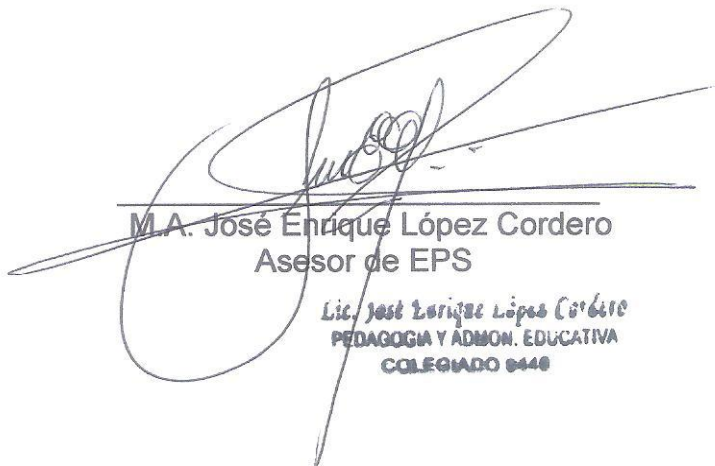 M.A. José Enrique López Cordero
Asesor de EPS
Lic. José Enrique López Cordero
PEDAGOGIA Y ADMON. EDUCATIVA
COLEGIADO